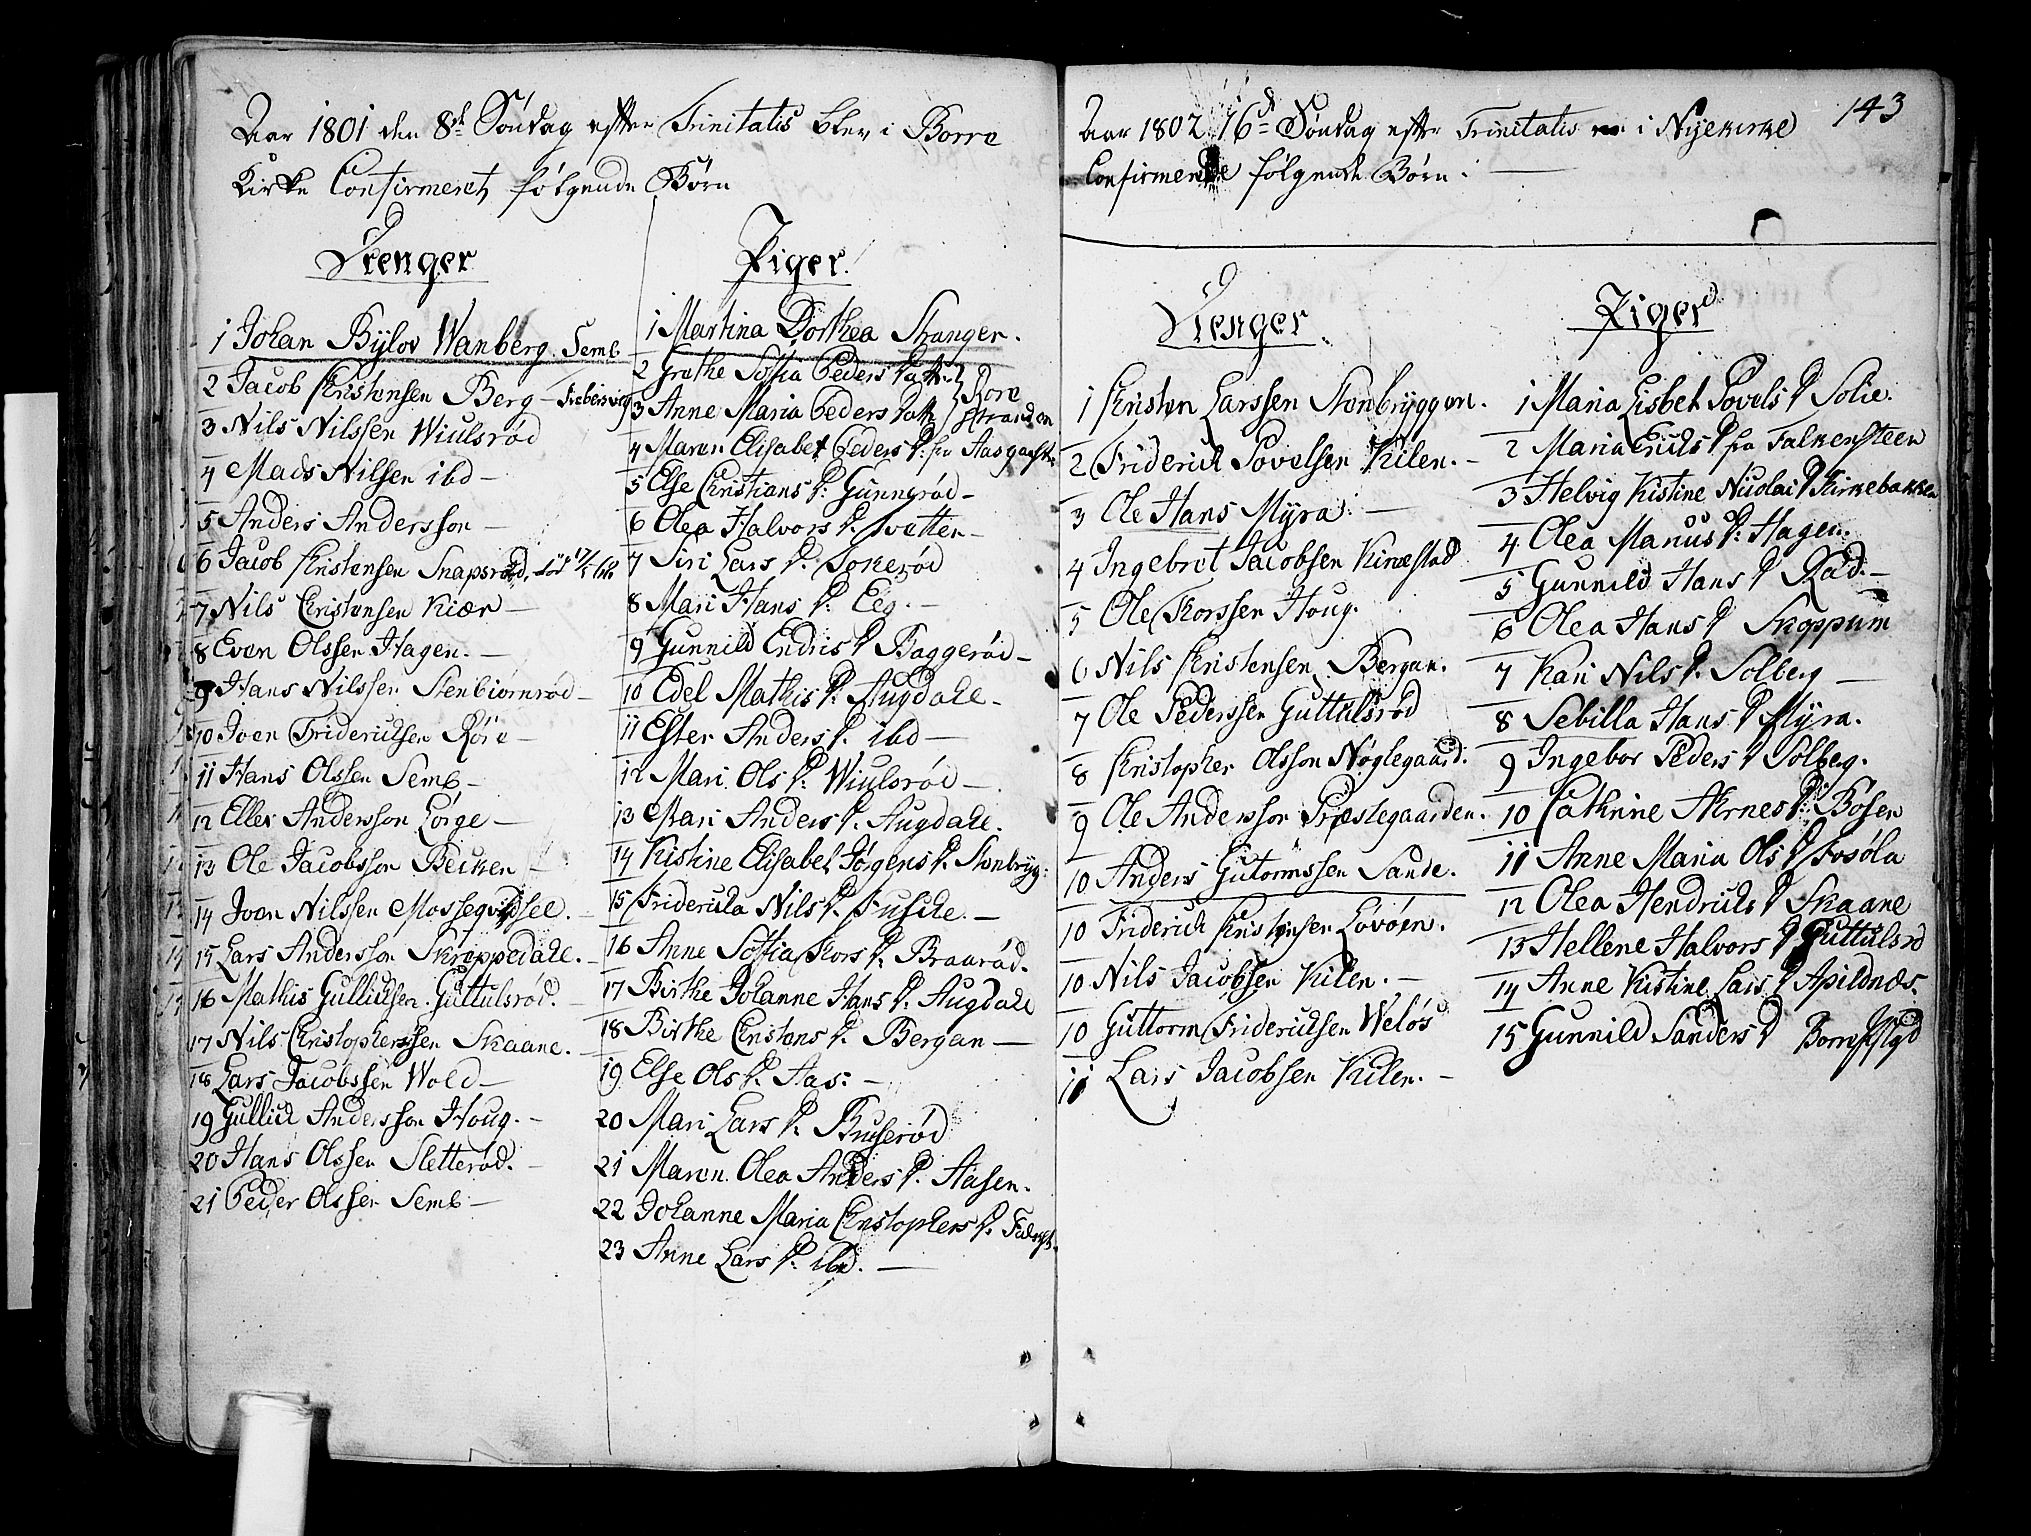 Aar 1801 den 8de Søndag efter Trinitatis blev i Borre
Kirke Confirmeret følgende Børn
Drenger
1 Johan Bylov Wanberg. Semb
2 Jacob Kristensen Berg -
3 Nils Nilssen Wiulsrød
4 Mads Nilsen ibd -
5 Anders Andersson -
6 Jacob Kristensen Snapsrød,
7 Nils Christensen Kiær -
8 Even Olssen Hagen. -
9 Hans Nilssen Stenbiørnrød -
10 Joen Fridericksen Røre -
11 Hans Olssen Semb -
12 Eller Andersson Lørge -
13 Ole Jacobsson Becken -
14 Joen Nilssen Mossegødsel. -
15 Lars Andersson Skreppedale. -
16 Mathis Gullicksen. Guttulsrød. -
17 Nils Christopherssen Skaane. -
18 Lars Jacobssen Wold -
19 Gullick Andersson Houg. -
20 Hans Olssen Sletterød. -
21 Peder Olssen Semb -
Piger.
1 Martina Dorthea Stranger.
2 Grethe Soffia Peders Datter
3 Anne Maria Peders Datter } Røre Stranden
4 Maren Elisabet Peders D: fra Aasgaards
5 Else Christians D: Gunnerød -
6 Olea Halvors D. Tvetten -
7 Siri Lars D. Sokerød
8 Mari Hans D. Eeg. -
9 Gunnild Endris D Baggerød -
10 Edel Mathis D. Augdale -
11 Ester Anders D. ibd -
12 Mari Ols D. Wiulsrød -
13 Mari Anders D. Augdale.
14 Kistine Elisabet Jørgens D. Stenbryg:
15 Fridericka Nils D. Fuscke. -
16 Anne Soffia Thors D. Braarød.
17 Birthe Johanne Hans D. Augdale
18 Birthe Christens D. Bergan -
19 Else Ols D. Aas: -
20 Mari Lars D. Bruserød
21 Maren Olea Anders D. Aasen.
22 Johanne Maria Christophers D.
23 Anne Lars D. ibd. -
143
Aar 1802 16de Søndag efter Trinitatis i Nyekirke
Confirmerede følgende Børn: -
Drenger.
1 Kristen Larssen Stenbryggen.
2 Friderick Povelsen Kilen. -
3 Ole Hans Myra: -
4 Ingebret Jacobsen Kirkestad
5 Ole Thorssen Houg.
6 Nils Kristensen Bergan.
7 Ole Pederssen Guttulsrød
8 Kristopher Olsson Nøglegaard.
9 Ole Andersson Præstegaarden.
10 Anders Gutormssen Sande.
10 Friderick Kristensen Løvøen.
10 Nils Jacobsen Kilen. -
10 Guttorm Fridericksen Weløs
11 Lars Jacobsen Kilen. -
Piger
1 Maria Lisbet Povels D Solie.
2 Maria Ericks D fra Falkensteen
3 Helvig Kistine Nicolai D Kirkebakken
4 Olea Manus D: Hagen.
5 Gunnild Hans D Rød. -
6 Olea Hans D Skoppum
7 Kari Nils D. Solberg -
8 Sebilla Hans D Myra.
9 Ingebor Peders D Solberg.
10 Cathrine Arnes D: Bosen
11 Anne Maria Ols D Fosøla
12 Olea Hendricks D Skaane
13 Hellene Halvors D Guttulsrd
14 Anne Kistine Lars D Apildnæs.
15 Gunnild Sanders D